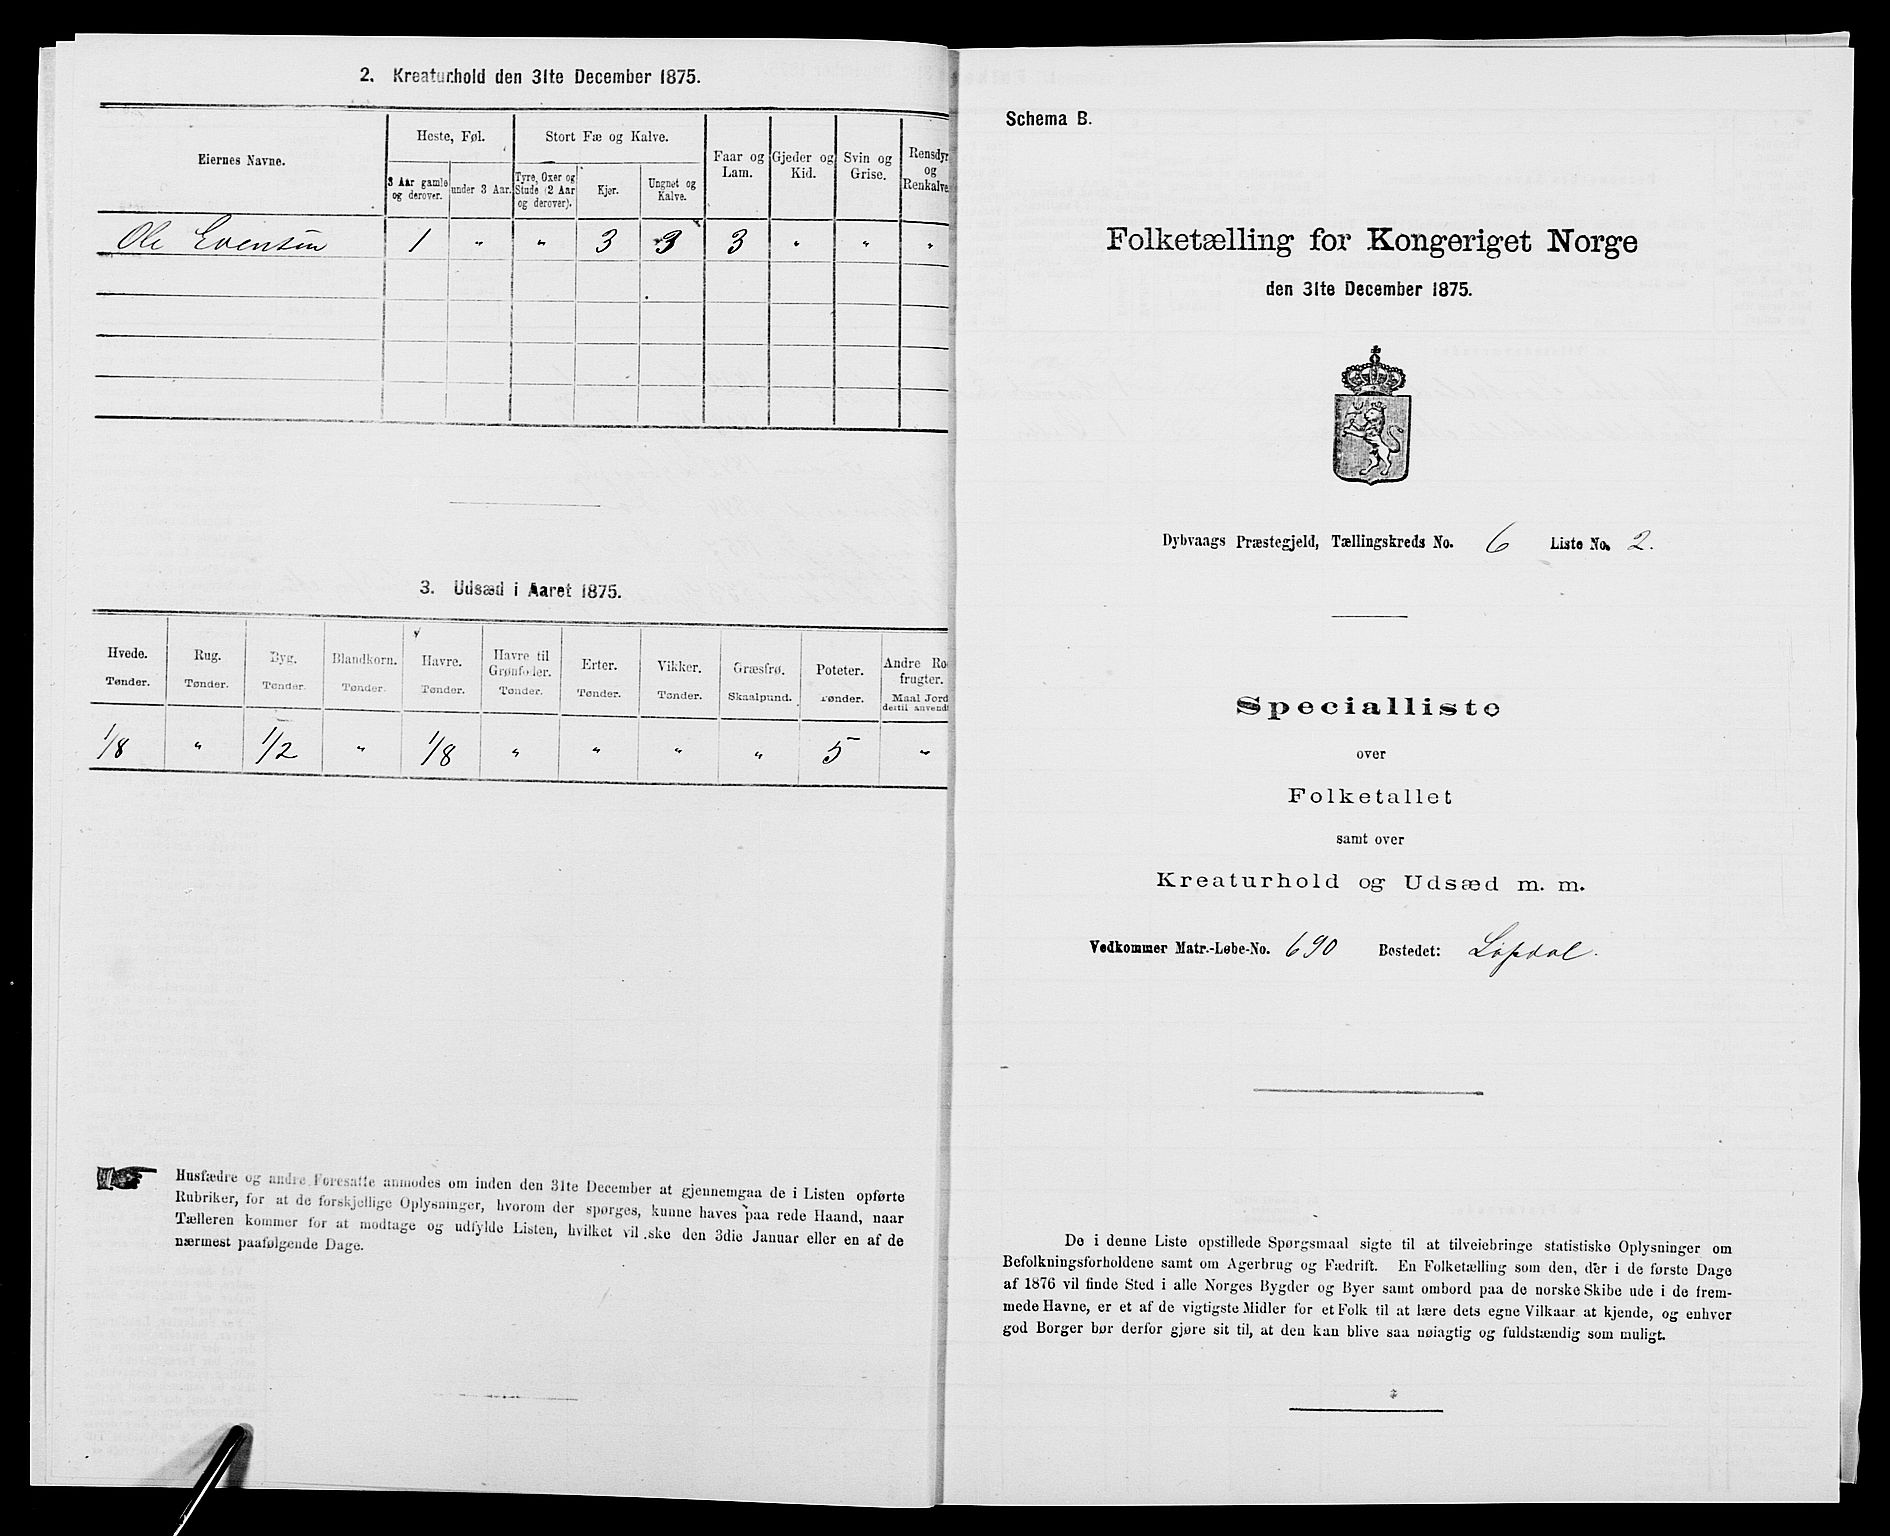 2. Kreaturhold den 31te December 1875.
Eiernes Navne.
Heste, Føl.
Stort Fæ og Kalve.
Faar og Lam.
Gjeder og Kid.
Svin og Grise.
Rensdyr og Renkalve.
3 Aar gamle og derover.
under 3 Aar.
Tyre, Oxer og Stude (2 Aar og derover).
Kjør.
Ungnøt og Kalve.
Ole Evensen 1 " " 3 3 3 " " "
3. Udsæd i Aaret 1875.
Hvede. Rug. Byg. Blandkorn. Havre. Havre til Grønfoder. Erter. Vikker. Græsfrø. Poteter. Andre Ro- frugter.
Tønder. Tønder. Tønder. Tønder. Tønder. Tønder. Tønder. Tønder. Skaalpund. Tønder. Maal Jord dertil anvendt
1/8 " 1/2 " 1/8 " " " " 5 "
Husfædre og andre Foresatte anmodes om inden den 31te December at gjennemgaa de i Listen opførte
Rubriker, for at de forskjellige Oplysninger, hvorom der spørges, kunne haves paa rede Haand, naar
Tælleren kommer for at modtage og udfylde Listen, hvilket vil ske den 3die Januar eller en af de
nærmest paafølgende Dage.
Schema B.
Folketælling for Kongeriget Norge
den 31te December 1875.
Dybvaags Præstegjeld, Tællingskreds No. 6 Liste No. 2.
Specialliste
over
Folketallet
samt over
Kreaturhold og Udsæd m. m.
Vedkommer Matr.-Løbe-No. 690 Bostedet: Løpdal.
De i denne Liste opstillede Spørgsmaal sigte til at tilveiebringe statistiske Oplysninger om
Befolkningsforholdene samt om Agerbrug og Fædrift. En Folketælling som den, der i de første Dage
af 1876 vil finde Sted i alle Norges Bygder og Byer samt ombord paa de norske Skibe ude i de frem-
mede Havne, er et af de vigtigste Midler for et Folk til at lære dets egne Vilkaar at kjende, og enhver
god Borger bør derfor gjøre sit til, at den kan blive saa nøiagtig og fuldstændig som muligt.